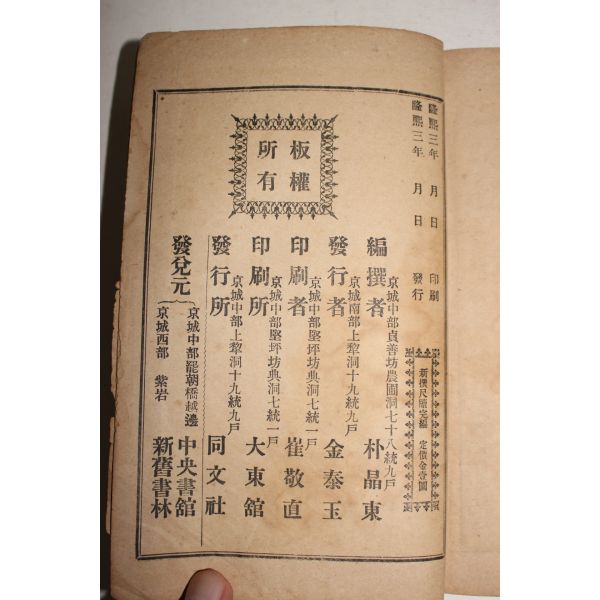 隆熙三年 月 日 印刷
隆熙三年 月 日 發行
新撰尺牘完編 定價金壹圜
板權
所有
編撰者 京城中部貞善坊農圃洞七十八統九戶 朴晶東
發行者 京城南部上犂洞十九統九戶 金泰玉
印刷者 京城中部堅坪坊典洞七統一戶 崔敬直
印刷所 京城中部堅坪坊典洞七統一戶 大東舘
發行所 京城中部上犂洞十九統九戶 同文社
發兌元
京城中部罷朝橋越邊 中央書舘
京城西部 紫岩 新舊書林